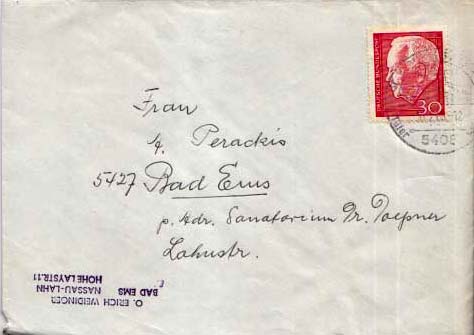 DEUTSCHE BUNDESPOST
30
5408
Frau
A. Perackis
5427 Bad Ems
p. Adr. Sanatorium Dr. Toepner
Lahnstr.
O. ERICH WEIDINGER
BAD EMS NASSAU-LAHN
HOHE LAYSTR. 11